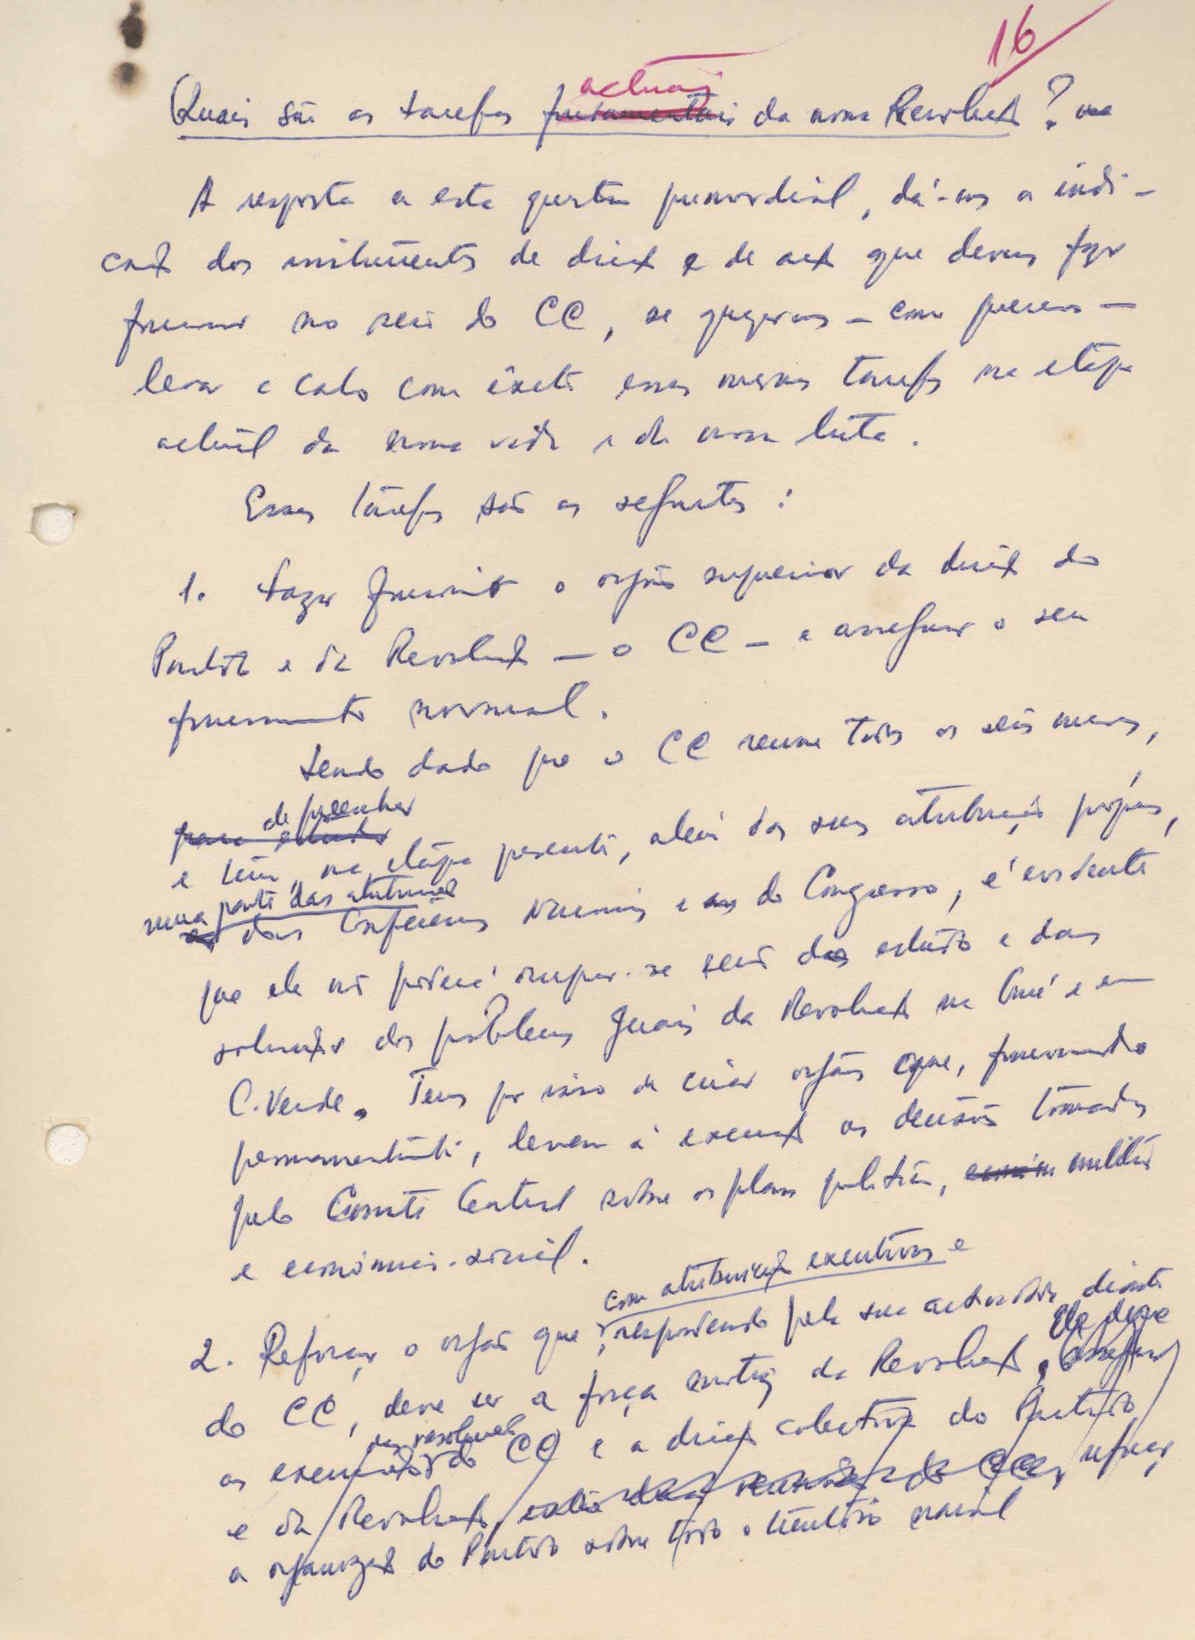 16
actuais
Quais são as tarefas fundamentais da nossa Revolução?
A resposta a esta questão primordial, dá-nos a indi-
cação dos instrumentos de direcção e de acção que devemos fazer
funcionar no seio do CC, se queremos — como queremos —
levar a cabo com êxito essas mesmas tarefas na etapa
actual da nossa vida e da nossa luta.
Essas tarefas são as seguintes:
1. Fazer funcionar o orgão superior da direcção do
Partido e da Revolução — o CC — e assegurar o seu
funcionamento normal.
Sendo dado que o CC reune todos os seis meses,
de preencher
e tem, na etapa presente, além das suas atribuições próprias,
uma parte das atribuições
das Conferências Nacionais e do Congresso, é evidente
que ele não poderá ocupar-se senão do estudo e das
soluções dos problemas gerais da Revolução na Guiné e em
C. Verde. Temos por isso de criar orgãos que, funcionando
permanentemente, levem à execução as decisões tomadas
pelo Comité Central sobre os planos político, militar
e económico-social.
com atribuições executivas e
2. Reforçar o orgão que, respondendo pela sua actividade diante
Ele deve
do CC, deve ser a força motriz da Revolução, assegurar
das resoluções
a execução do CC e a direcção colectiva do Partido
e da Revolução, reforçar
a organização do Partido sobre todo o território nacional